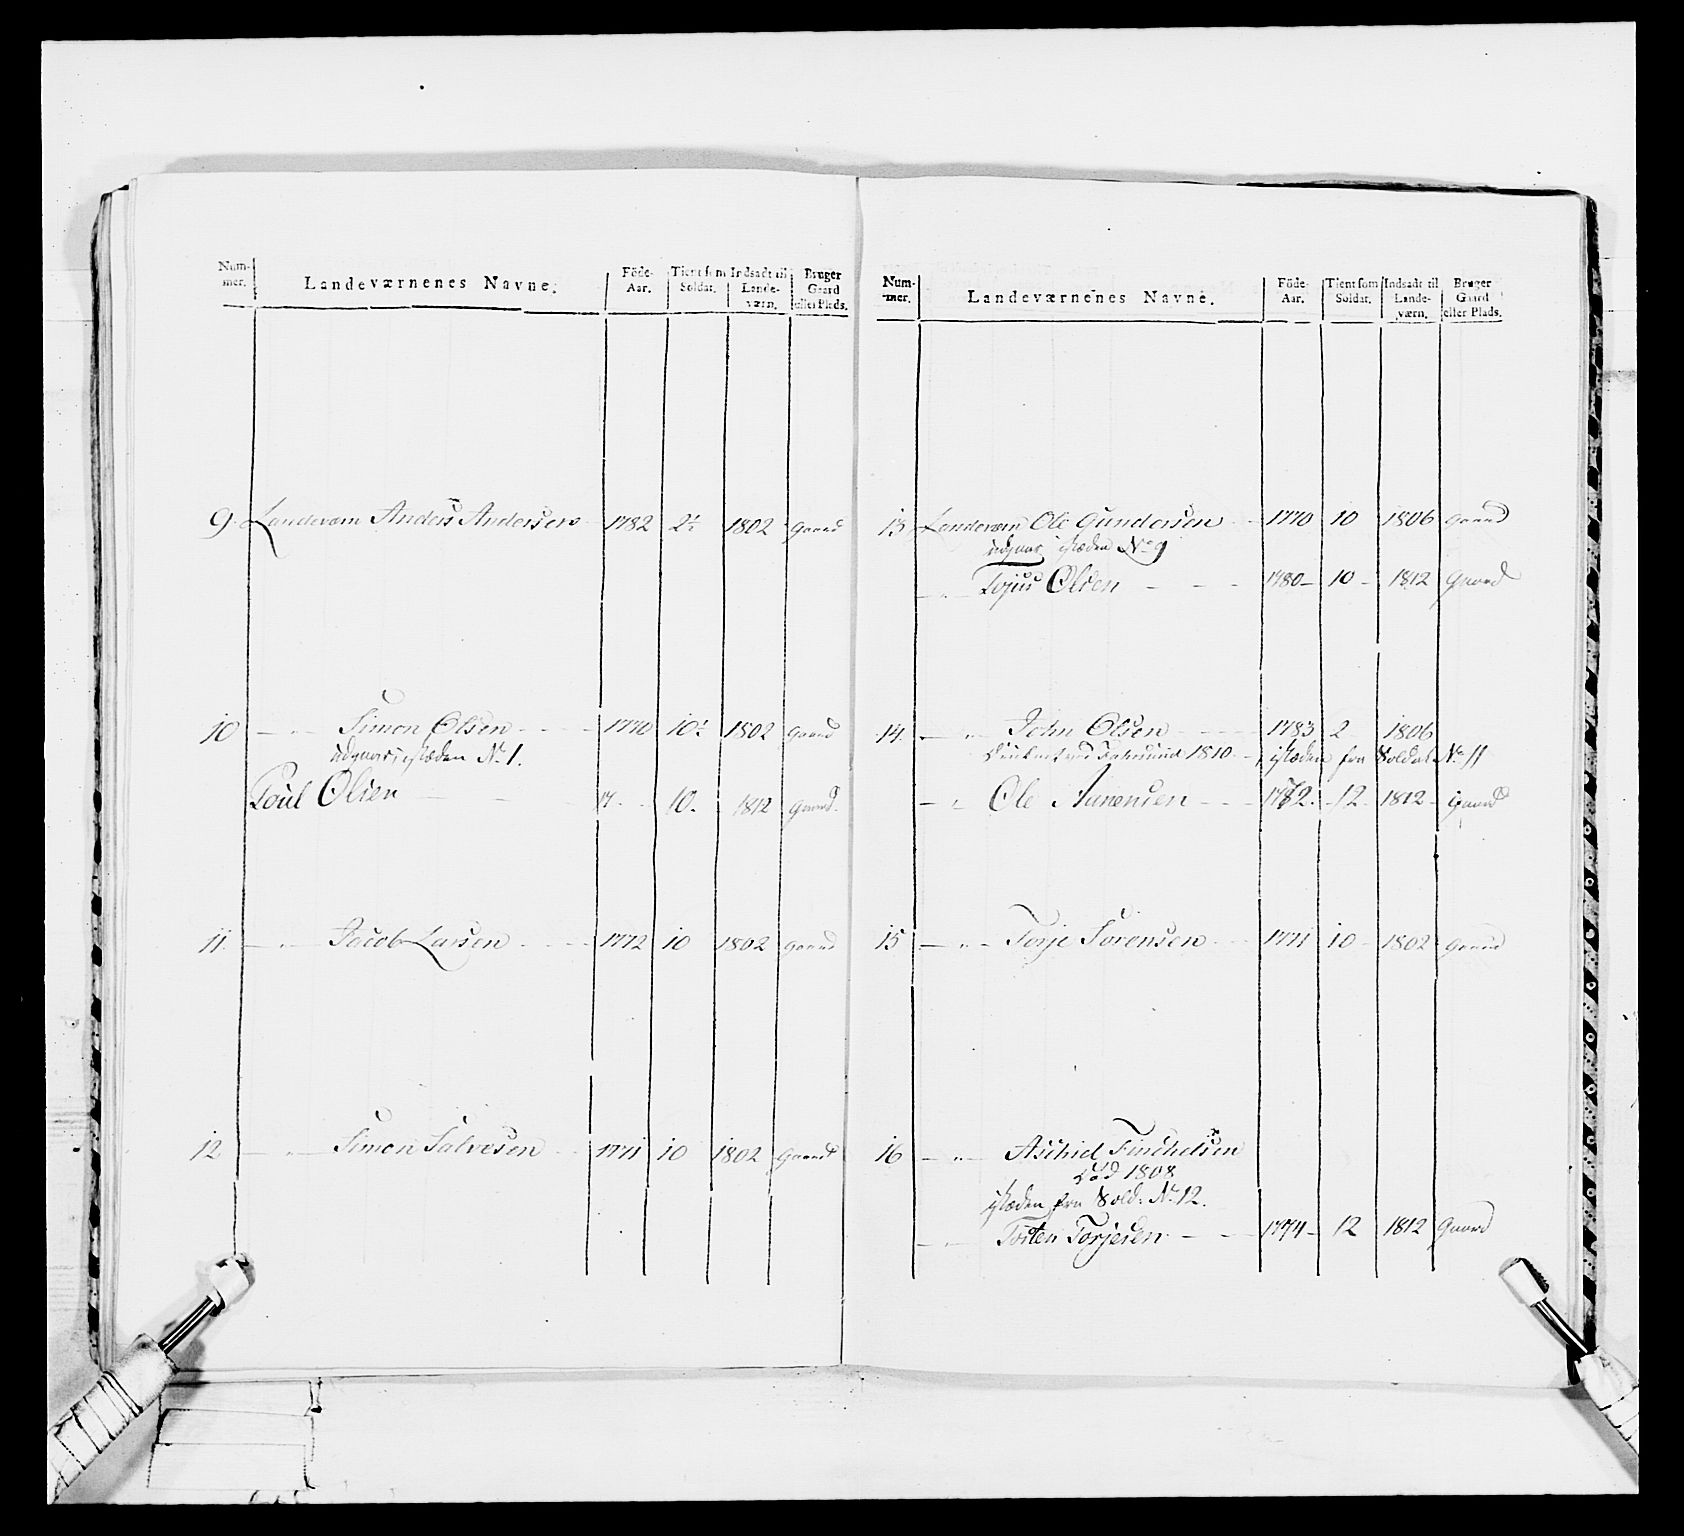 Num-mer. Landeværnenes Navne. Föde-Aar. Tient som Soldat. Indsadt til Lande-værn. Bruger Gaard eller Plads.
9. Landeværn Anders Andersen 1782 2½ 1802 Gaard
10 — " — Simon Olsen 1770 10½ 1802 Gaard
udgaar, istæden No 1.
Poul Olsen 17 10. 1812 Gaard.
11. — " — Jacob Larsen 1772 10 1802 Gaard
12 — " — Simon Salvesen 1771 10 1802 Gaard
Num-mer. Landeværnenes Navne. Föde-Aar. Tient som Soldat. Indsadt til Lande-værn. Bruger Gaard eller Plads.
13 Landeværn Ole Gundersen 1770 10 1806 Gaard
udgaar istæden No 9
— " — Tojus Olsen 1780 10 1812 Gaard
14. — " — John Olsen 1783 2 1806
1810 — istæden fra Soldat No 11
— " Ole Aanensen 1782. 12 1812 Gaard
15 — " — Torje Sørensen 1771 10 1802 Gaard
16 — " — Aschild Finchelsen
død 1808
istæden fra Sold: No 12.
— " — Tosten Torjesen 1774 12 1812 Gaard